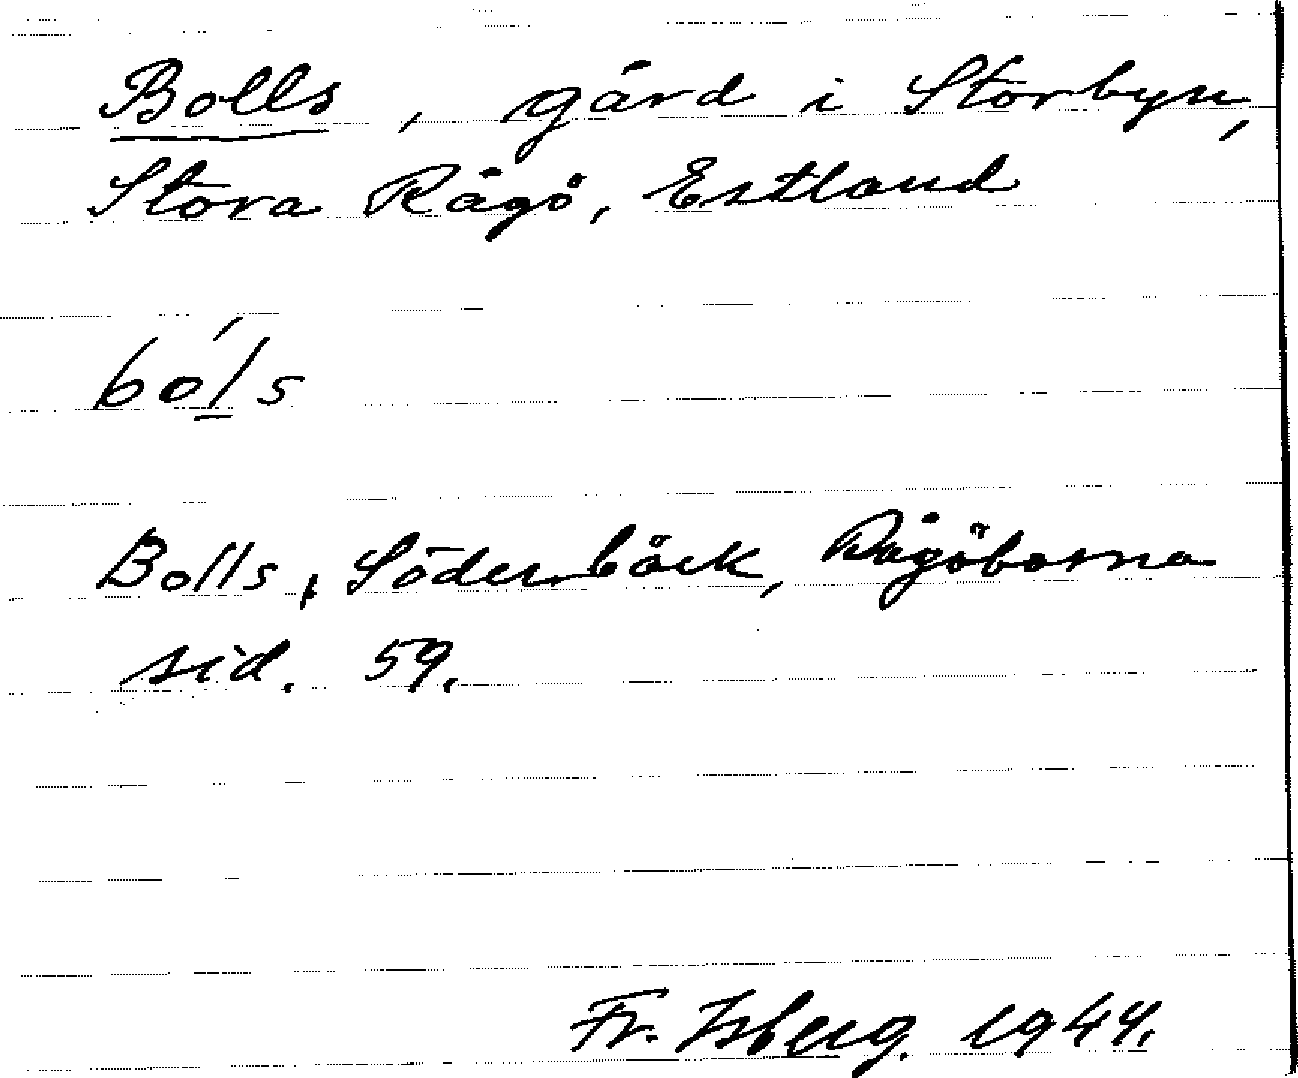 Bolls, gård i Storbyn,
Stora Rågö, Estland
bo̲ĺs
Bolls, Söderbäck, Rågöborna
sid. 59.
Fr. Isberg. 1944.